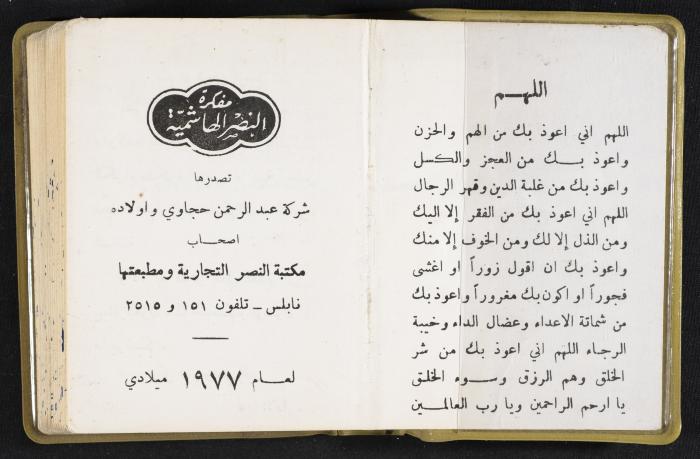 اللهم
اللهم اني اعوذ بك من الهم والحزن
واعوذ بك من العجز والكسل
واعوذ بك من غلبة الدين وقهر الرجال
اللهم اني اعوذ بك من الفقر إلا اليك
ومن الذل إلا لك ومن الخوف إلا منك
واعوذ بك ان اقول زوراً او اغشى
فجوراً او اكون بك مغروراً واعوذ بك
من شماتة الاعداء وعضال الداء وخيبة
الرجاء اللهم اني اعوذ بك من شر
الخلق وهم الرزق وسوء الخلق
يا ارحم الراحمين ويا رب العالمين
مفكرة
النصر الهاشمية
تصدرها
شركة عبد الرحمن حجاوي واولاده
اصحاب
مكتبة النصر التجارية ومطبعتها
نابلس - تلفون ١٥١ و ٢٥١٥
لعام ١٩٧٧ ميلادي